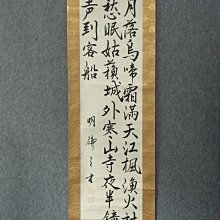 月落烏啼霜滿天江楓漁火對
愁眠姑蘓城外寒山寺夜半鐘
声到客船
明